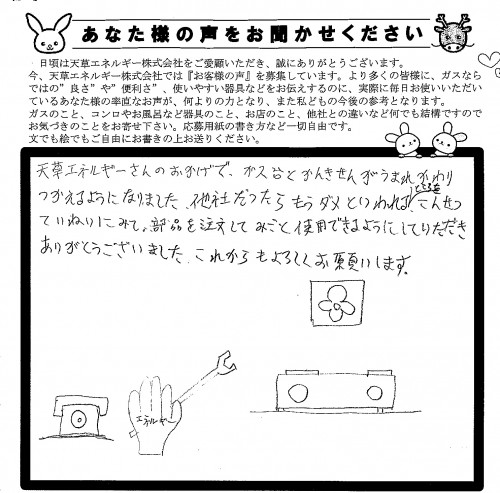 あなた様の声をお聞かせください
日頃は天草エネルギー株式会社をご愛顧いただき、誠にありがとうございます。
今、天草エネルギー株式会社では『お客様の声』を募集しています。より多くの皆様に、ガスなら
ではの"良さ"や"便利さ"、使いやすい器具などをお伝えするのに、実際に毎日お使いいただいて
いるあなた様の率直なお声が、何よりの力となり、また私どもの今後の参考となります。
ガスのこと、コンロやお風呂など器具のこと、お店のこと、他社との違いなど何でも結構ですので
お気づきのことをお寄せ下さい。応募用紙の書き方など一切自由です。
文でも絵でもご自由にお書きの上お送りください。
天草エネルギーさんのおかげで、ガス台とかんきせんがうまれかわり
つかえるようになりました。他社だったらもうダメといわれるところを こんせつ
ていねいにみて、部品を注文してみごと使用できるようにしてりただき
ありがとうございました。これからもよろしくお願いします。
エネルギー